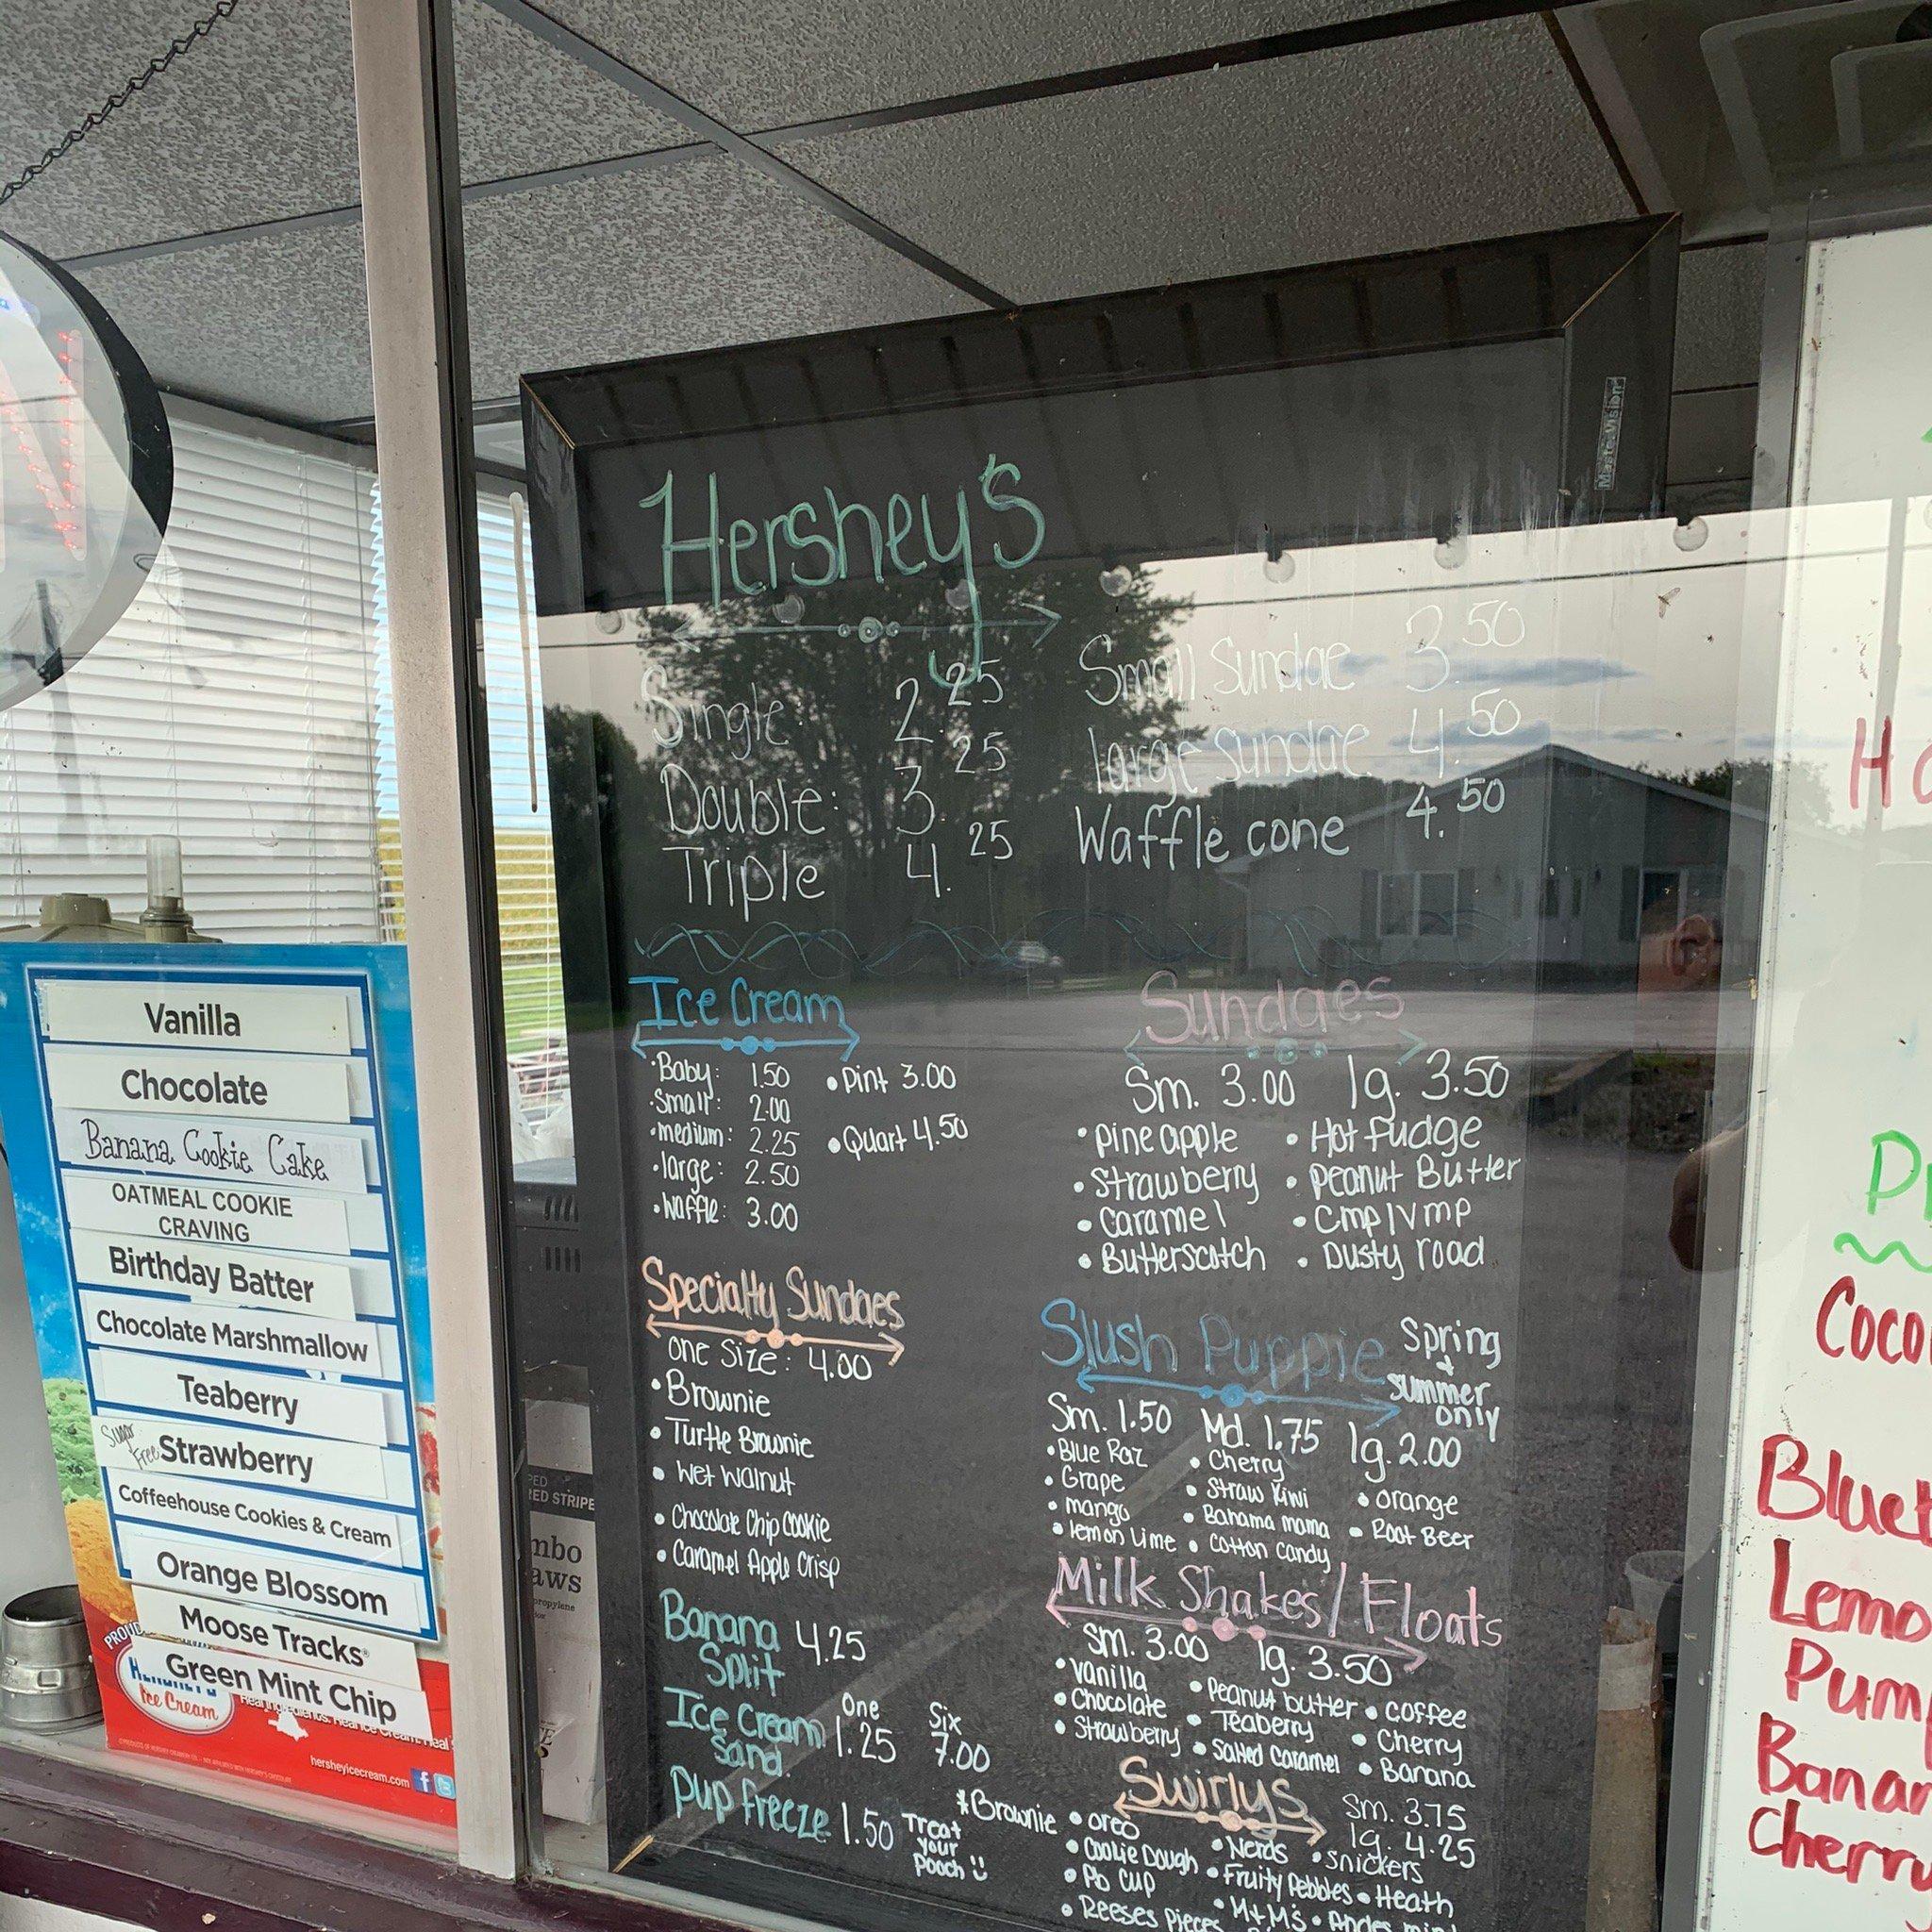 Vanilla
Chocolate
Banana Cookie Cake
OATMEAL COOKIE
CRAVING
Birthday Batter
Chocolate Marshmallow
Teaberry
Sugar Free Strawberry
Coffeehouse Cookies & Cream
Orange Blossom
Moose Tracks
Green Mint Chip
Ice Cream
hersheyicecream.com
MasterVision
Hershey's
Single: 2.25
Double: 3.25
Triple 4.25
Small Sundae 3.50
large sundae 4.50
Waffle cone 4.50
Ice Cream
• Baby: 1.50
• Small: 2.00
• medium: 2.25
• large: 2.50
• Waffle: 3.00
• Pint 3.00
• Quart 4.50
Sundaes
Sm. 3.00 lg. 3.50
• Pineapple • Hot fudge
• Strawberry • Peanut Butter
• Caramel • CMP/VMP
• Butterscotch • Dusty road
Specialty Sundaes
one size: 4.00
• Brownie
• Turtle Brownie
• Wet Walnut
• Chocolate Chip Cookie
• Caramel Apple Crisp
Slush Puppie Spring + summer only
Sm. 1.50 Md. 1.75 lg. 2.00
• Blue Raz • Cherry
• Grape • Straw Kiwi • orange
• mango • Bahama mama • Root Beer
• lemon Lime • Cotton Candy
Banana Split 4.25
Ice Cream Sand. One 1.25 Six 7.00
Pup freeze 1.50 Treat your Pooch
Milk Shakes/Floats
Sm. 3.00 lg. 3.50
• Vanilla • Peanut butter • coffee
• Chocolate • Teaberry • Cherry
• Strawberry • Salted Caramel • Banana
Swirlys
Sm. 3.75
lg. 4.25
• Brownie • oreo • Nerds • snickers
• Cookie Dough • Fruity Pebbles • Heath
• Pb cup • M+M's • Andes
• Reeses pieces
Ha
Coco
Lemo
Pum
Banan
Cherry